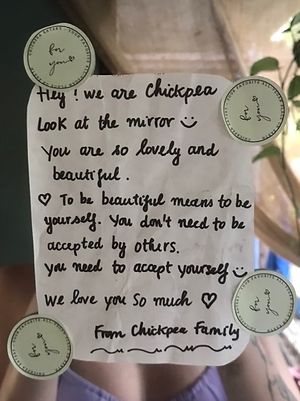 for
you
for
you
Hey! we are Chickpea
Look at the mirror
You are so lovely and
beautiful.
♡ To be beautiful means to be
yourself. You don't need to be
accepted by others.
you need to accept yourself
We love you so much ♡
From Chickpea Family
for
you
for
you